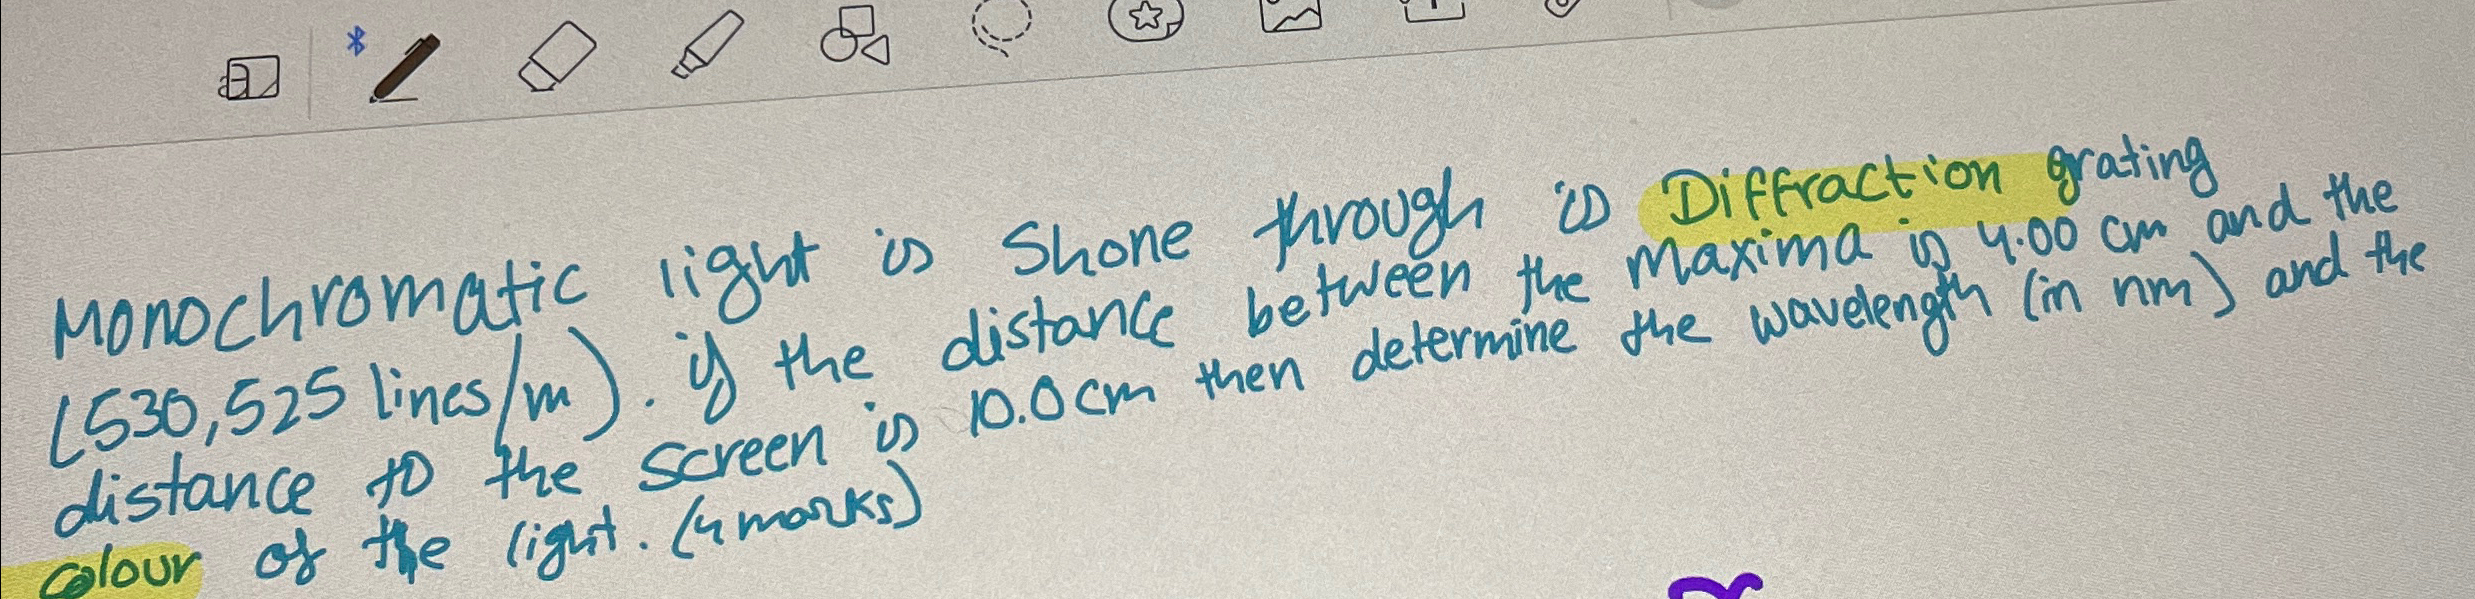 Monochromatic light is shone through is Diffraction grating
(530,525 lines/m). if the distance between the maxima is 4.00 cm and the
distance to the screen is 10.0cm then determine the wavelength (in nm) and the
colour of the light. (4 marks)